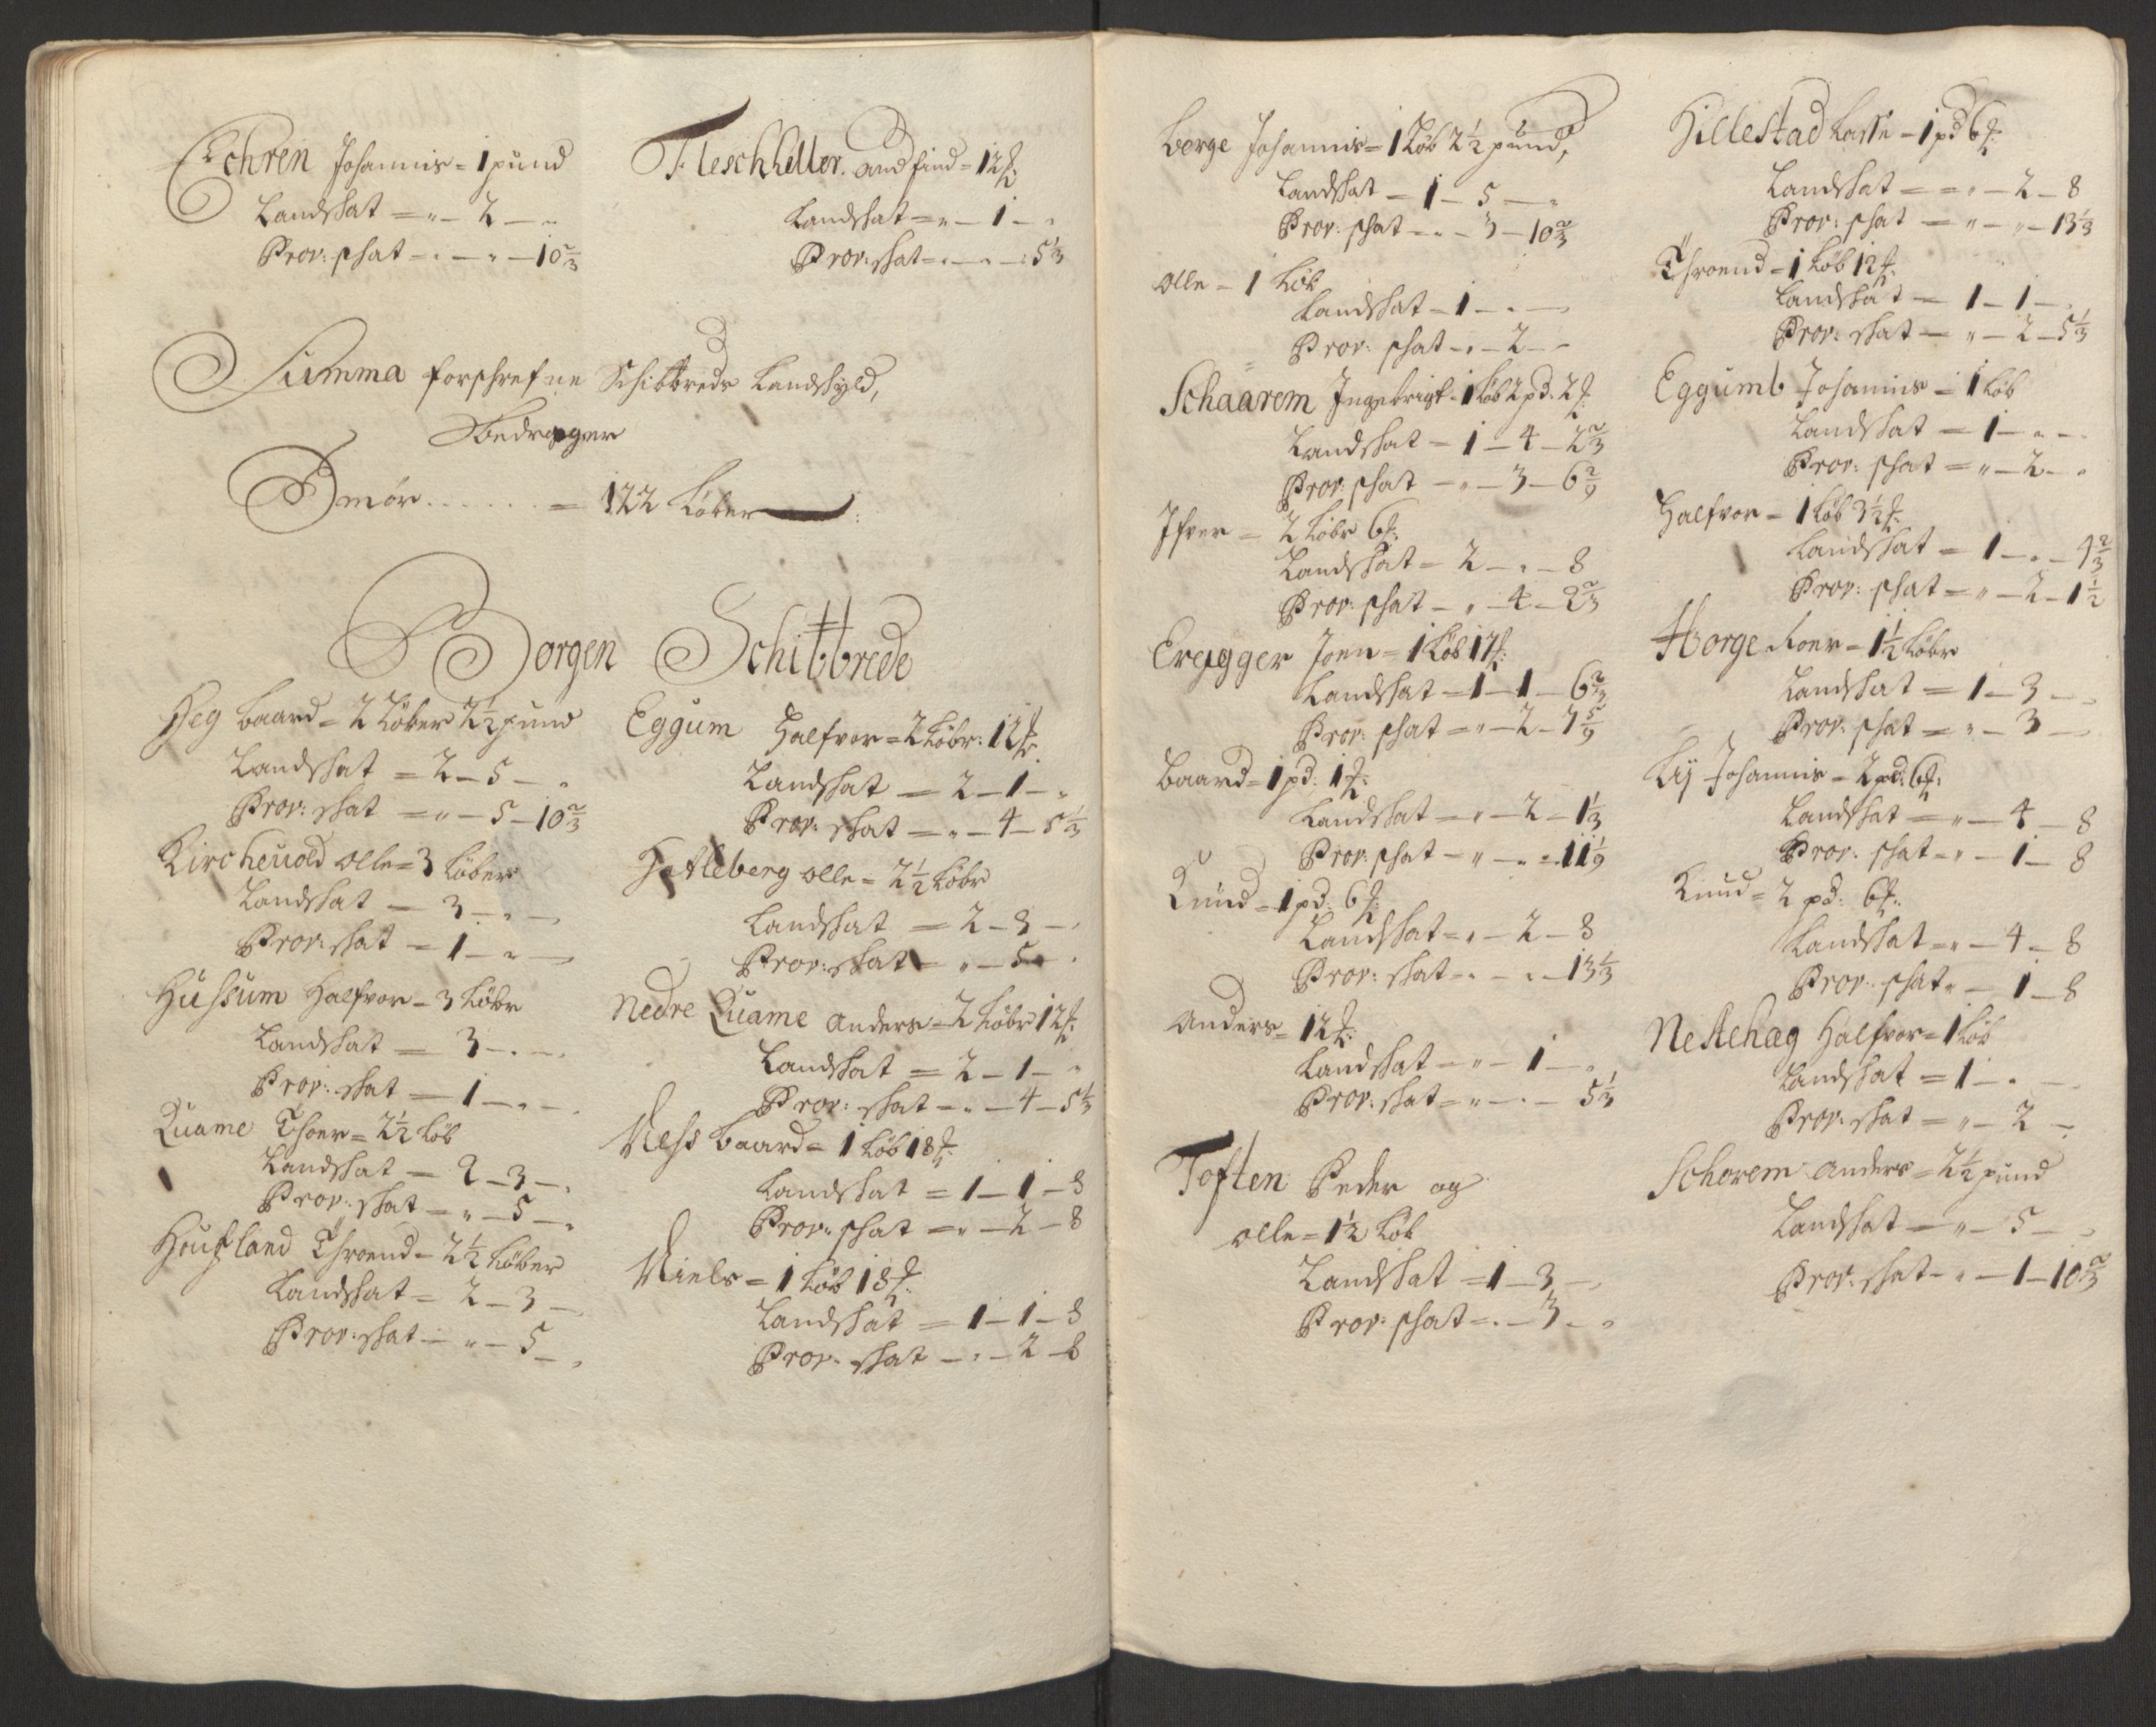 Echren Johannis = 1 pund
Landskat = „ – 2 – „
Prov: skat – „ – „ – 10 2/3
Fleschheller. Andfind = 12 ℔:
Landskat = „ – 1 – „
Prov: skat = „ – „ – 5 1/3
Summa forschrefne Schibbreds Landskyld,
Bedrager
Smør ...... = 122 Løber
Borgen Schibbrede
Heg Baard = 2 Løber 2 1/2 pund
Landskat = 2 – 5 – „
Prov: skat = „ – 5 – 10 2/3
Kircheuold Olle = 3 Løber
Landskat – 3 – „ –
Prov: skat – 1 – „ –
Hussum Halfvor = 3 Løbr
Landskat – 3 – „ –
Prov: skat – 1 – „ –
Quame Thoer = 2 1/2 Løb
Landskat – 2 – 3 – „
Prov: skat – „ – 5 – „
Houfland Throend – 2 1/2 Løber
Landskat = 2 – 3 –
Prov: skat – „ – 5 – „
Eggum Halfvor = 2 Løbr: 12 ℔:
Landskat – 2 – 1 – „
Prov: skat = „ – 4 – 5 1/3
Hatleberg Olle = 2 1/2 Løbr
Landskat = 2 – 3 – „
Prov: skat = „ – 5 – „
Nedre Quame Anders – 2 Løbr 12 ℔:
Landskat = 2 – 1 – „
Prov: skat – „ – 4 – 5 1/3
Ness Baard = 1 Løb 18 ℔:
Landskat = 1 – 1 – 8
Prov: skat = „ – 2 – 8
Niels = 1 Løb 18 ℔:
Landskat – 1 – 1 – 8
Prov: skat – „ – 2 – 8
Berge Johannis = 1 Løb 2 1/2 pund,
Landskat = 1 – 5 – „
Prov: skat – „ – 3 – 10 2/3
Olle – 1 Løb
Landskat – 1 – „ –
Prov: skat – „ – 2 –
Schaarem Ingebrigt = 1 Løb 2 pd. 2 ℔:
Landskat – 1 – 4 – 2 2/3
Prov: skat – „ – 3 – 6 2/9
Ifver = 2 Løbr 6 ℔:
Landskat – 2 – „ – 8
Prov: skat – „ – 4 – 2 2/3
Eregger Joen = 1 Løb 17 ℔:
Landskat = 1 – 1 – 6 2/3
Prov: skat = „ – 2 – 7 5/9
Baard = 1 pd: 1 ℔:
Landskat – „ – 2 – 1 1/3
Prov: skat – „ – „ – 11 1/9
Knud = 1 pd: 6 ℔:
Landskat = „ – 2 – 8
Prov: skat – „ – „ – 13 1/3
Anders = 12 ℔:
Landskat – „ – 1 – „
Prov: skat = „ – „ – 5 1/3
Toften Peder og
Olle = 1 1/2 Løb
Landskat = 1 – 3 –
Prov: skat = „ – 3 – „
Hillestad Lasse – 1 pd 6 ℔:
Landskat – „ – 2 – 8
Prov: skat = „ – „ – 13 1/3
Throend = 1 Løb 12 ℔:
Landskat – 1 – 1 – „
Prov: skat – „ – 2 – 5 1/3
Eggumb Johannis – 1 Løb
Landskat = 1 – „ –
Prov: skat = „ – 2 – „
Halfvor = 1 Løb 3 1/2 ℔:
Landskat = 1 – „ – 4 2/3
Prov: skat = „ – 2 – 1 1/2
Horge Roer = 1 1/2 Løbr
Landskat = 1 – 3 –
Prov: skat = „ – 3 –
Lij Johannis – 2 pd: 6 ℔:
Landskat = „ – 4 – 8
Prov: skat = „ – 1 – 8
Knud = 2 pd: 6 ℔:
Landskat = „ – 4 – 8
Prov: skat „ – 1 – 8
Nestehag Halfvor = 1 Løb
Landskat = 1 – „ –
Prov: skat = „ – 2 –
Schorem Anders = 2 1/2 pund
Landskat – „ – 5 – „
Prov: skat – „ – 1 – 10 2/3